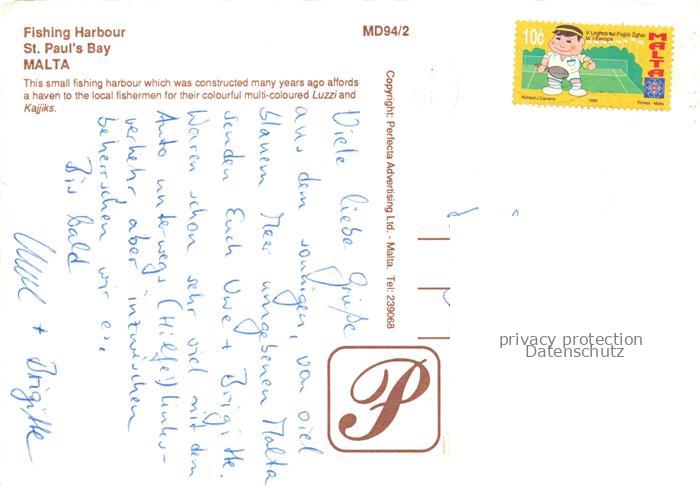 Fishing Harbour
St. Paul's Bay
MALTA
MD94/2
This small fishing harbour which was constructed many years ago affords
a haven to the local fishermen for their colourful multi-coloured Luzzi and
Kajjiks.
Copyright: Perfecta Advertising Ltd. - Malta. Tel: 239068
10c
MALTA
Richard J Caruana
Printex - Malta
Viele liebe Grüße
aus dem sonnigen, von viel
blauem Meer umgebenen Malta
senden Euch Uwe + Brigitte.
Waren schon sehr viel mit dem
Auto unterwegs (Hilfe!) Links-
verkehr, aber inzwischen
beherrschen wir es.
Bis bald
Uwe + Brigitte
P
privacy protection
Datenschutz